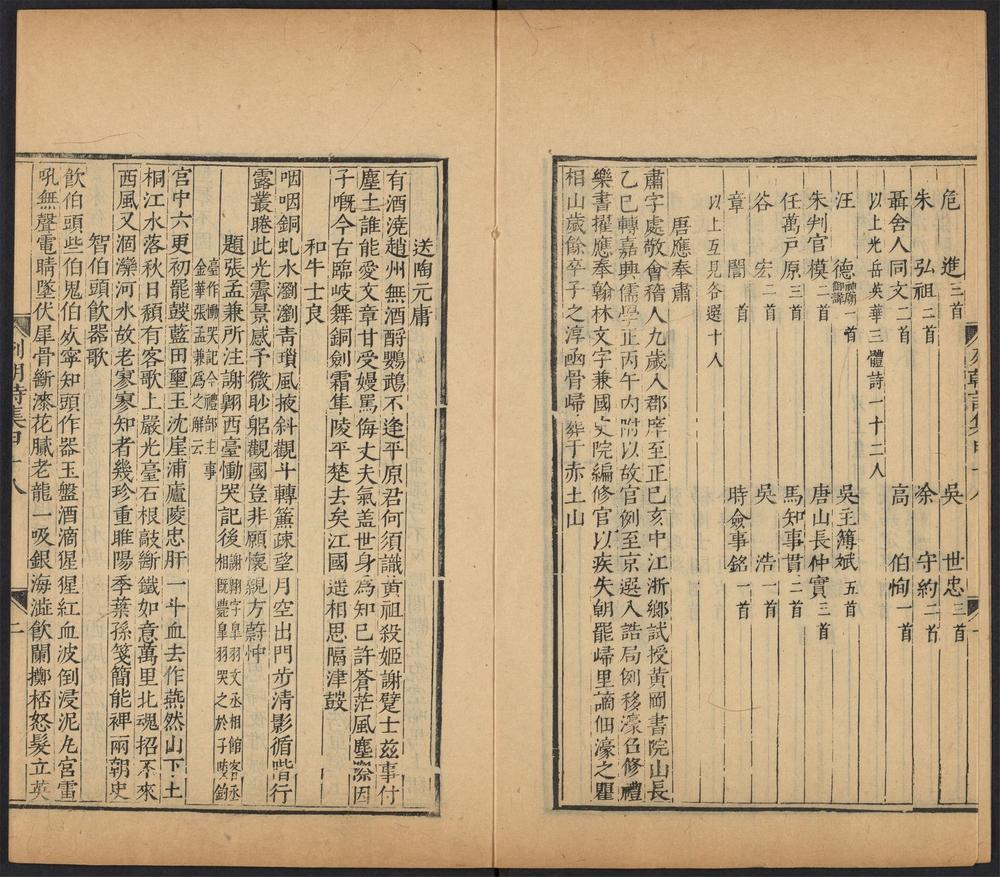 危進三首　吳世忠三首
朱弘祖二首　涂守約二首
聶舍人同文二首　高伯恂一首
以上光岳英華三體詩一十二人
汪德一首　吳主簿斌五首
朱判官模二首　唐山長仲實三首
任萬戶原三首　馬知事貫二首
谷宏二首　吳浩一首
章誾一首　時僉事銘一首
以上互見各選十人
唐應奉肅
肅字處敬會稽人九歲入郡庠至正已亥中江浙鄉試授黃岡書院山長
乙巳轉嘉興儒學正丙午內附以故官例至京選入誥局例移濠召修禮
樂書擢應奉翰林文字兼國史院編修官以疾失朝罷歸里謫佃濠之瞿
相山歲餘卒子之淳函骨歸葬于赤土山
列朝詩集甲十八　一
送陶元庸
有酒澆趙州無酒酹鸚鵡不逢平原君何須識黃祖殺姬謝躄士茲事付
塵土誰能愛文章甘受嫚罵侮丈夫氣蓋世身為知已許蒼茫風塵際因
子慨今古臨岐舞銅劍霜隼陵平楚去矣江國遥相思隔津鼓
和牛士良
咽咽銅虬水瀏瀏青瑣風掖斜觀斗轉簾疎望月空出門步清影循階行
露叢睠此光霽景感予微眇躬觀國豈非願懷親方蔚忡
題張孟兼所注謝翺西臺慟哭記後謝翺字皐羽文丞相館客丞相既薨皐羽哭之於子陵釣
臺作慟哭記今禮部主事金華張孟兼為之解云
宮中六更初罷鼓藍田璽玉沈崖浦廬陵忠肝一斗血去作燕然山下土
桐江水落秋日頹有客歌上嚴光臺石根敲斷鐵如意萬里北魂招不來
西風又涸灤河水故老寥寥知者幾珍重睢陽季葉孫箋簡能裨兩朝史
智伯頭飲器歌
飲伯頭些伯鬼伯夾寧知頭作器玉盤酒滴猩猩紅血波倒浸泥丸宮雷
吼無聲電睛墜伏犀骨斷漆花膩老龍一吸銀海溢飲闌擲桮怒髮立英
列朝詩集甲十八　二